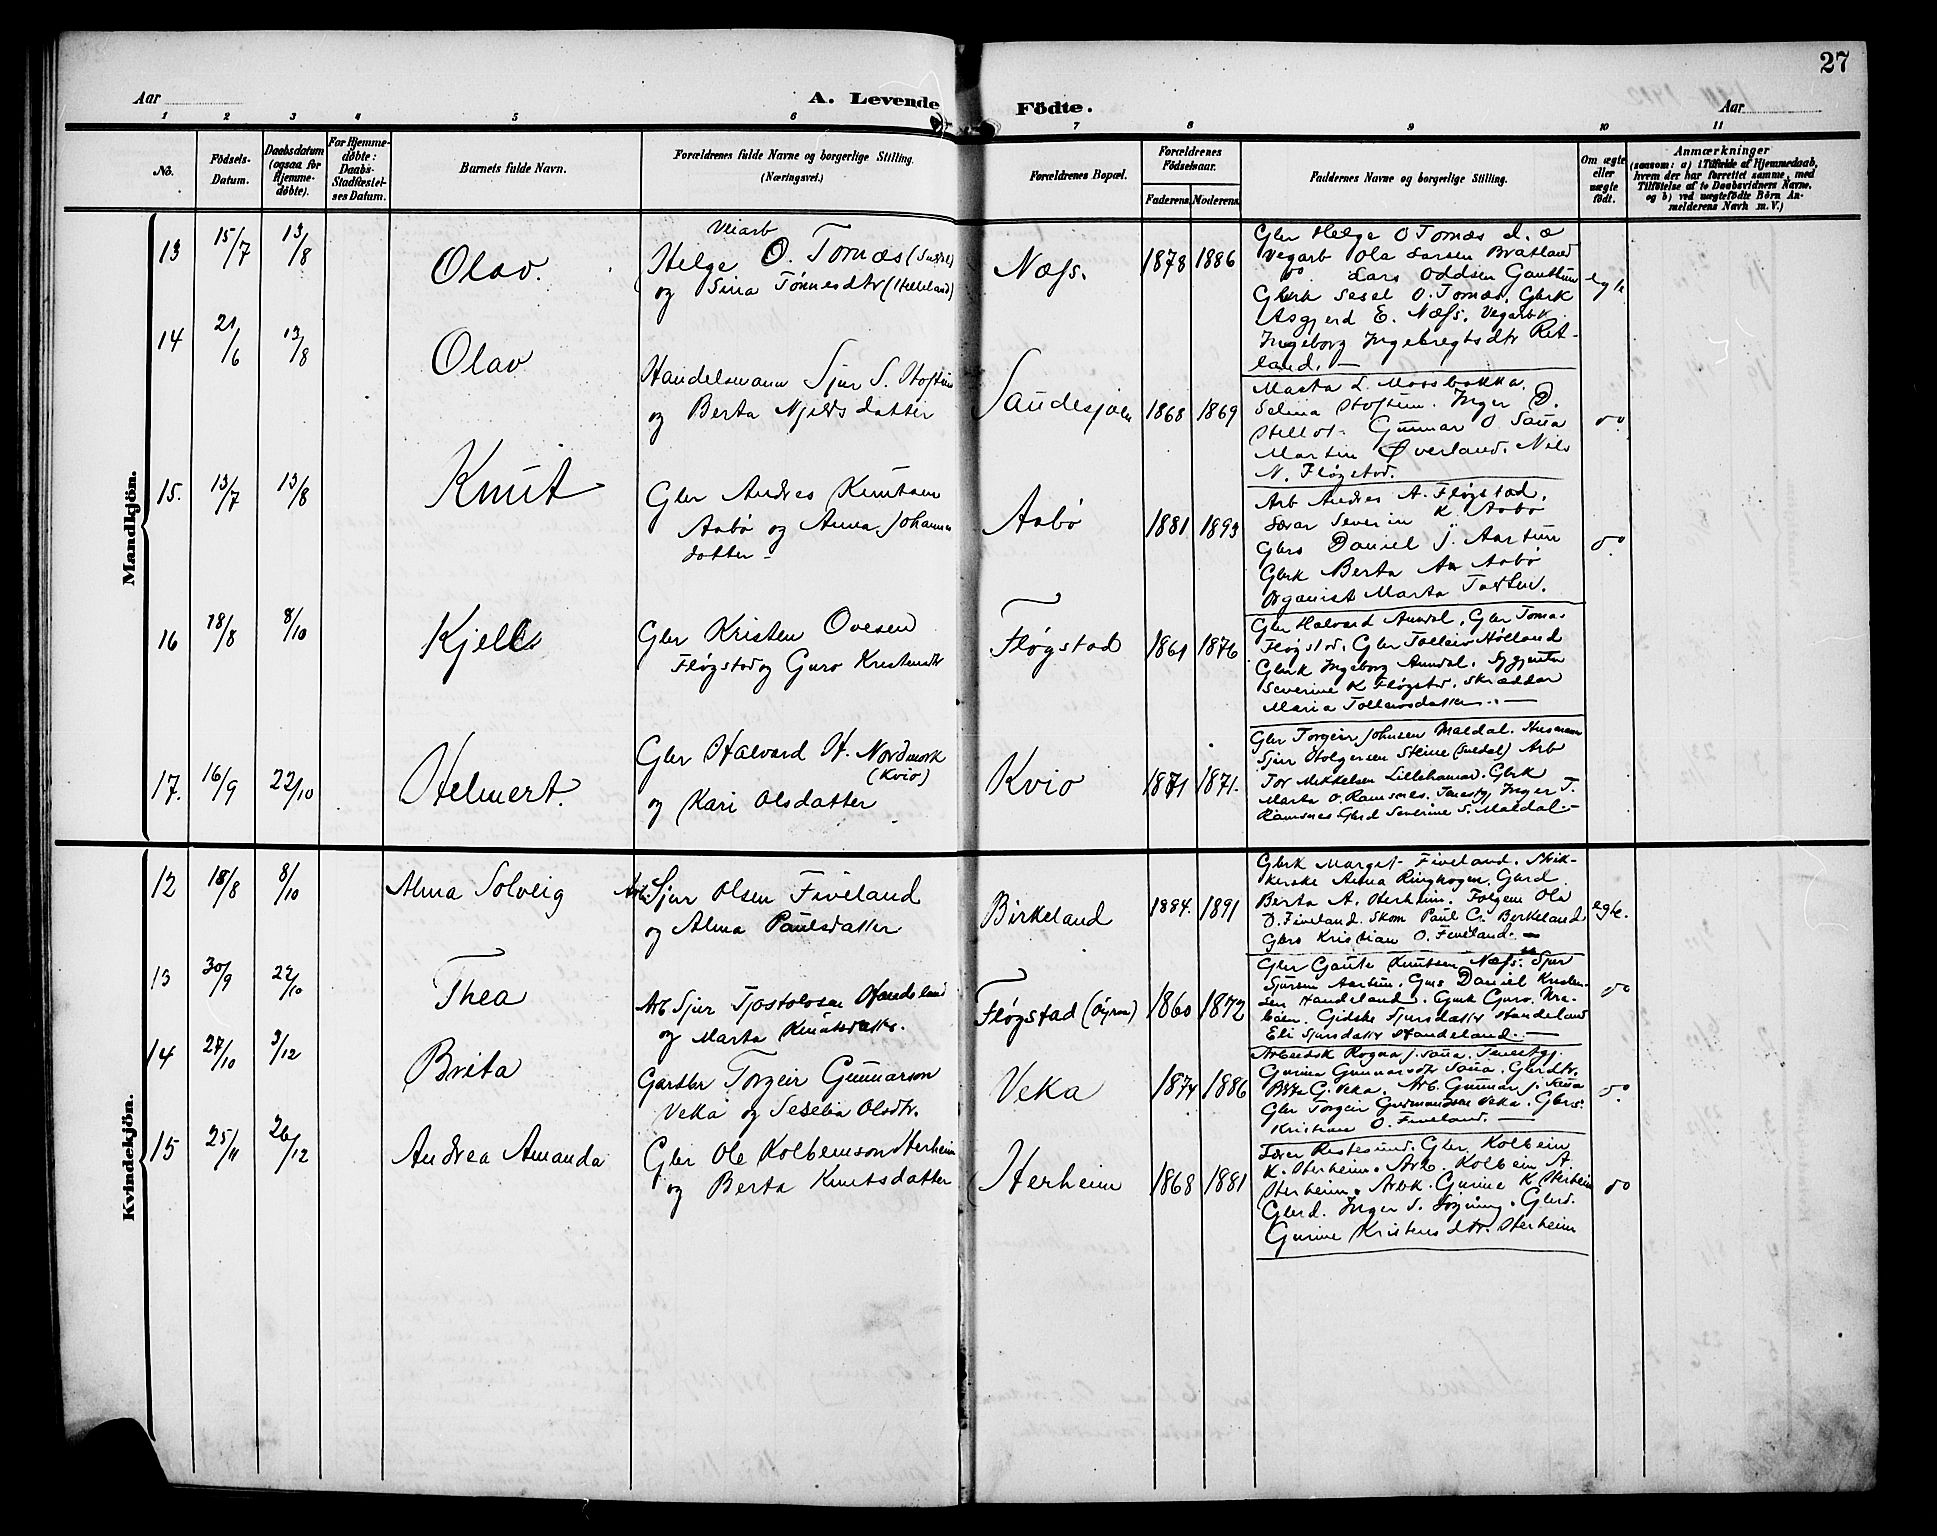 27
Aar
A. Levende Födte.
Aar
1 2 3 4 5 6 7 8 9 10 11
No.
Födsels-Datum.
Daabsdatum (ogsaa for Hjemme-døbte).
For Hjemme-døbte: Daabs-Stadfæstel-ses Datum.
Barnets fulde Navn.
Forældrenes fulde Navne og borgerlige Stilling.
(Næringsvei.)
Forældrenes Bopæl.
Forældrenes Fødselsaar.
Faderens Moderens
Faddernes Navne og borgerlige Stilling.
Om ægte eller uægte født.
Anmærkninger
(saasom: a) i Tilfælde af Hjemmedaab,
hvem der har forrettet samme, med
Tilføielse af to Daabsvidners Navne,
og b) ved uægtefødte Börn An-
melderens Navn m. V.)
Mandkjön.
13 15/7 13/8 Olav.
Veiarb
Helge O. Tornæs
og Sina Tønnesdtr (Helleland)
Næss. 1878 1886
Gbr Helge O Tornæs d. æ
Vegarb Ola Larsen Bratland
do Lars Oddsen
Gbrk Sesel O. Tornæs. Gbrk
Asgjerd E. Næss. Vegarbk
Ingeborg Ingebregtsdtr Ret-
land. —
egte
14 21/6 13/8 Olav
Handelsmann Sjur S. Hoftun
og Berta Njelsdatter
Saudesjøen 1868 1869
Marta L. Mosbakka.
Selina Hoftun. Inger D.
Gunnar O. Saua
Martin Øverland. Nils
N. Fløgstad.
do
15. 13/7 13/8 Knut
Gbr Andres Knutsen
Aabø og Anna Johanna
datter —
Aabø 1881 1893
Arb Andres A. Fløgstad.
Severin K. Aabø
Gbrs Daniel J. Aartun
Gbrk Berta Aabø
Organist Marta
do
16 18/8 8/10 Kjell
Gbr Kristen Ovesen
Fløgstad og Guro Kristensdtr
Fløgstad 1861 1876
Gbr Halvard Amdal. Gbr Tomas
Fløgstad. Gbr Tolleiv Hølland
Gbrk Ingeborg Amdal. Sypjente
Severine K Fløgstad. Skrædder
Maria Tolleivsdatter. —
17. 16/9 22/10 Helmert.
Gbr Halvard H. Nordmork
(Kvio)
og Kari Olsdatter
Kvio 1871 1871.
Gbr Torgeir Johnsen Maldal. Husmann
Sjur Holgersen Steine (Suldal) Arb
Tor Mikkelsen Lillehamar. Gbrk
Marta O. Ramsnes. Tenestj Inger T.
Ramsnes Gbrd Severine S. Maldal. —
Kvindekjön.
12 18/8 8/10 Alma Solveig
Arb. Sjur Olsen Fiveland
og Alma Paulsdatter
Birkeland 1884. 1891
Gbrk Marget Fiveland.
Anna Ringhogen. Gbrd
Berta A. Herheim. Ola
D. Fiveland. Skom Paul C. Birkeland
Gbrs Kristian O. Fiveland. —
egte.
13 30/9 22/10 Thea
Arb Sjur Tjostolvsen Handeland
og Marta Knutsdatter.
Fløgstad (Øyra) 1860 1872
Gbr Gaute Knutsen Næss. Sjur
Sjursen Aartun. Gbrs Daniel Kristen-
sen Handeland. Gbrk Guro
Gidske Sjursdatter Handeland
Eli Sjursdatter Handeland. —
do
14 27/10 3/12 Brita
Gardbr Torgeir Gunnarson
Veka og Seselia Olsdtr.
Veka 1874 1886
Arbeidsk Ragna J. Saua. Tenestgj.
Gurina Gunnarsdtr Saua. Gbrdtr.
Brita G. Veka. Arb. Gunnar J. Saua
Gbr Torgeir Gudmundson Veka. Gbrs.
Kristian O. Fiveland. —
do
15 25/11 26/12 Andrea Amanda
Gbr Ole Kolbeinson Herheim
og Berta Knutsdatter
Herheim 1868 1881
Lærer Gbr Kolbein
K. Herheim. Arb. Kolbein A.
Herheim. Arbk. Gurine K. Herheim
Gbrd. Inger S. Gbrd.
Gurine Kristensdtr. Herheim
do